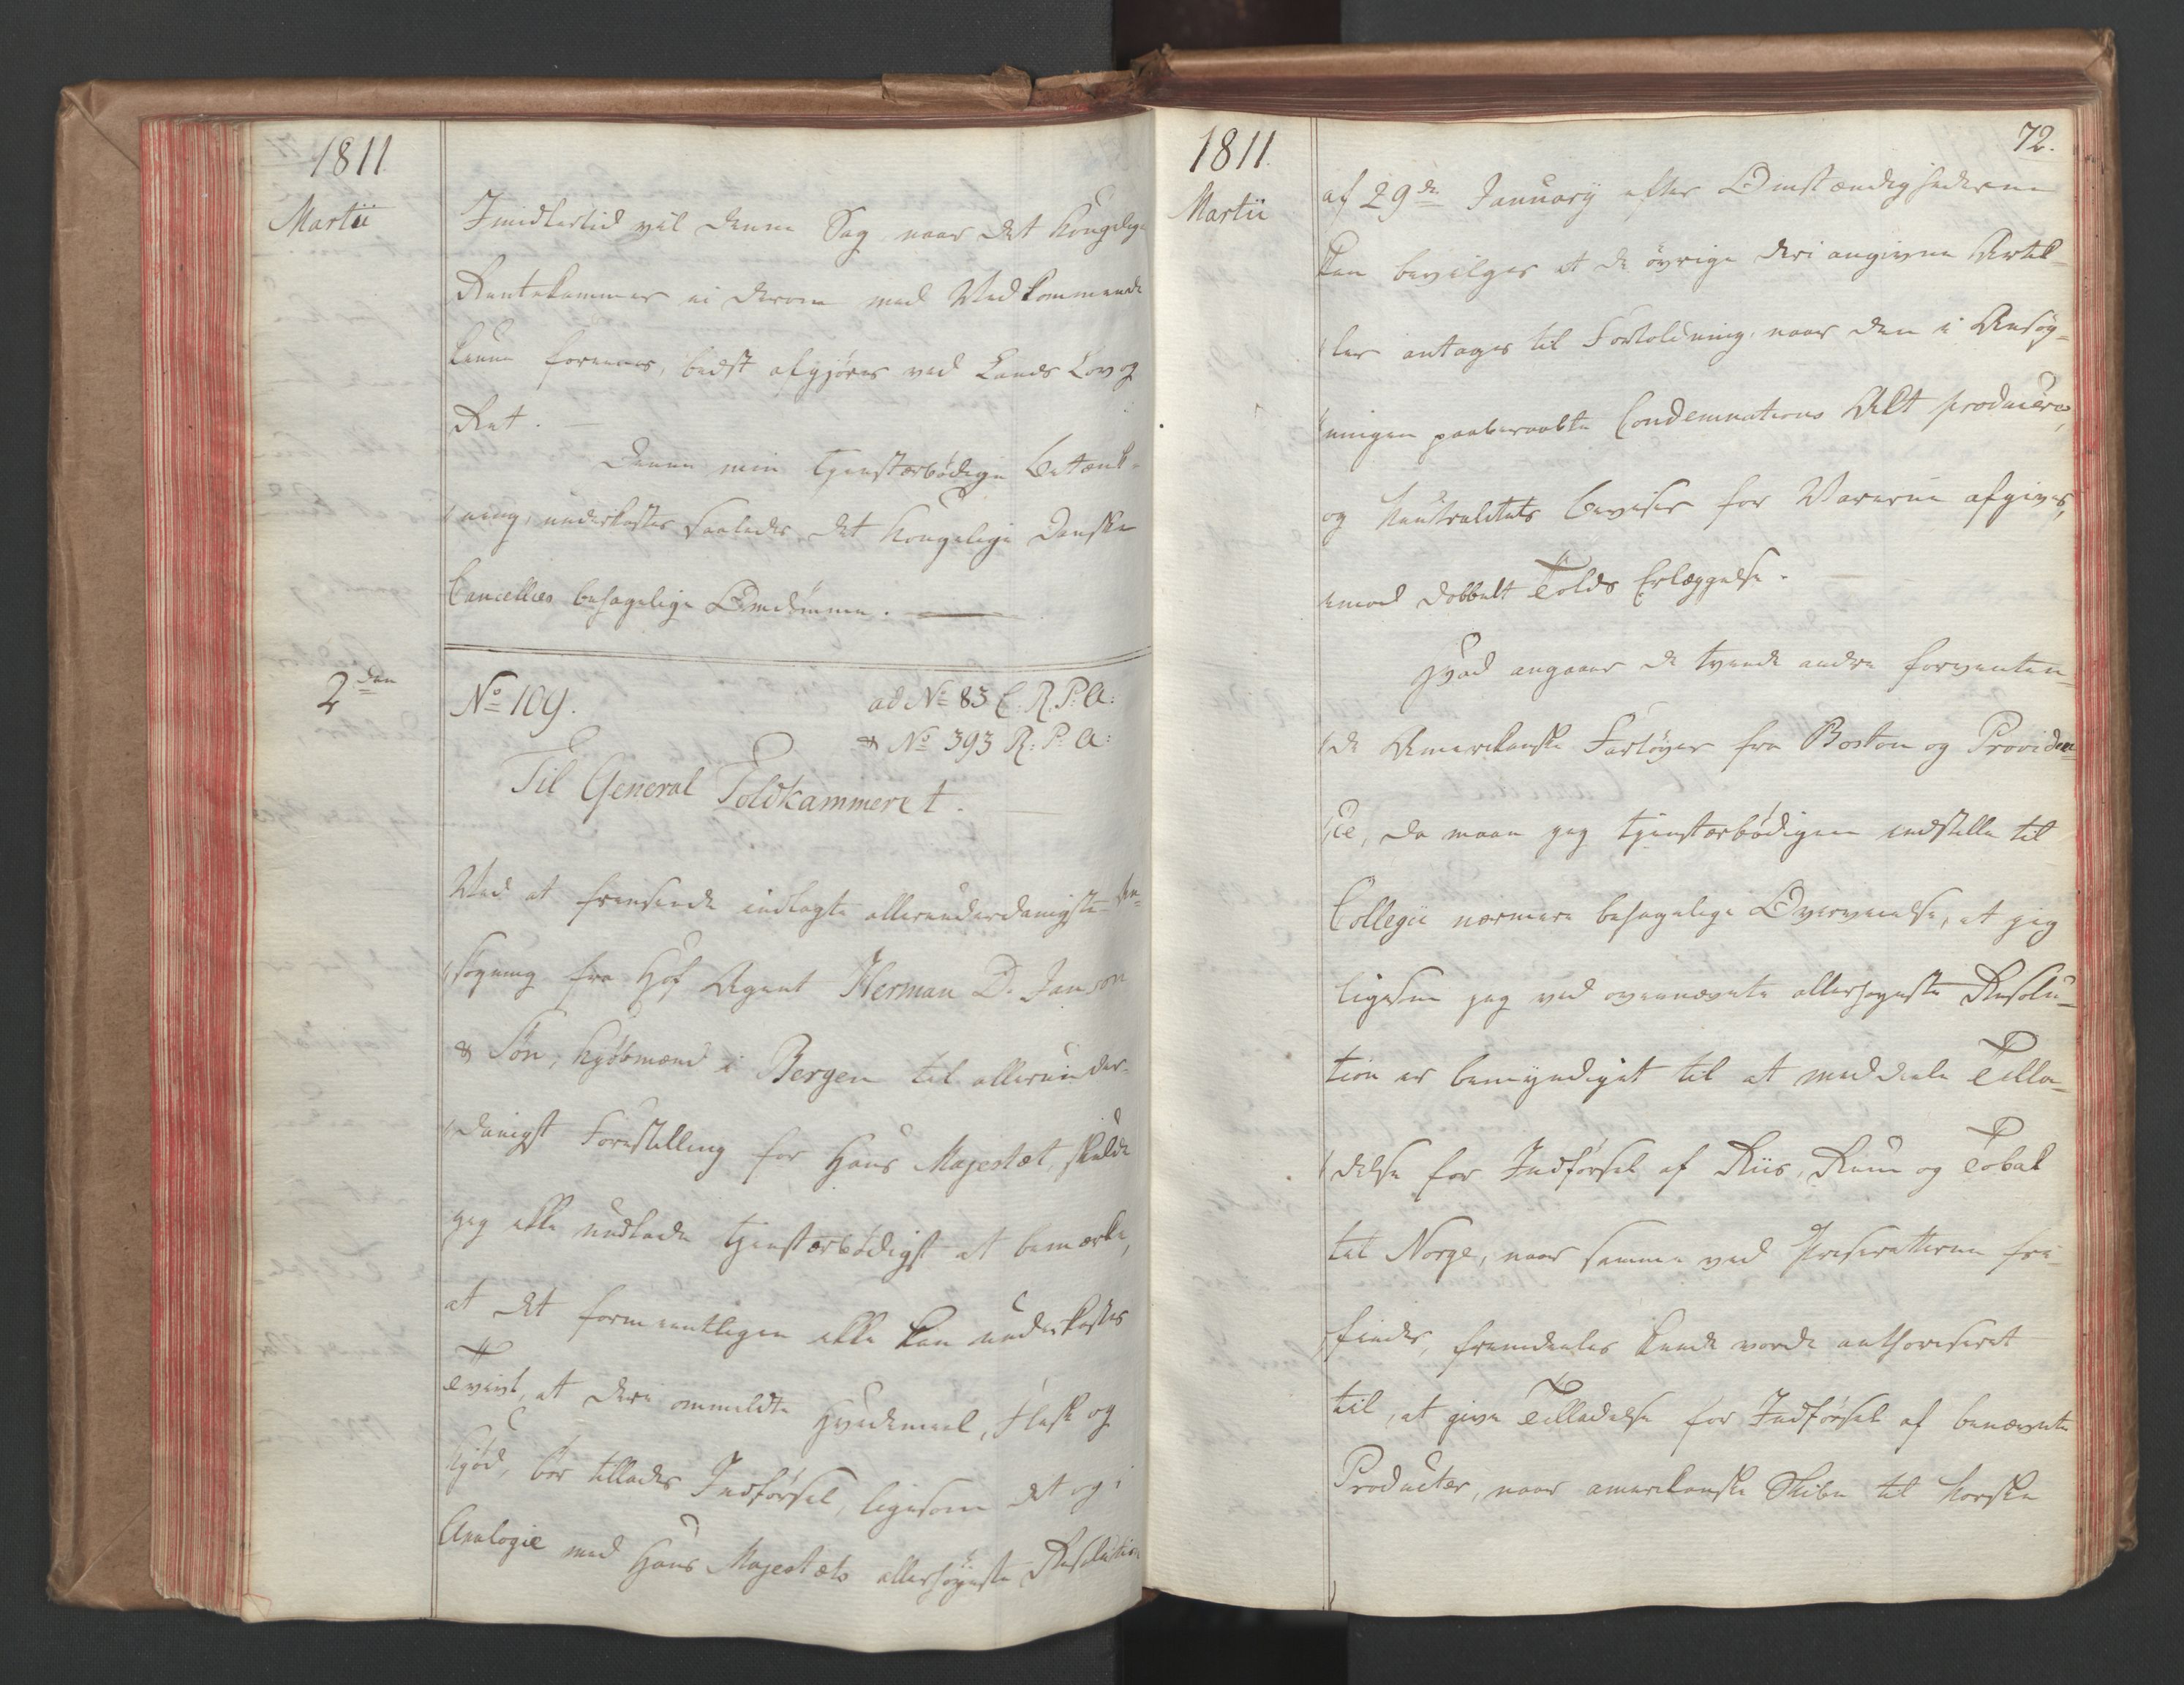 1811
Martii
Imidlertid vil denne Sag, naar det Kongelige
Rentekammer ei derom med Vedkommende
kunne forenes, bedst afgjøres ved Lands Lov og
Ret. —
Denne min tjenstærbødige Betænk-
ning, underkastes saaledes det Kongelige Danske
Cancellies behagelige Omdømme. —
2den
No 109.
ad No 83 C. R. P: A:
& No 393 R: P: A:
Til General Toldkammeret.
Ved at fremsende indlagte allerunderdanigste An-
søgning fra Hof Agent Herman D. Janson
& Søn, Kjøbmænd i Bergen til allerunder-
danigst Forestilling for Hans Majestæt, skulde
jeg ikke undlade tjenstærbødigst at bemærke,
at det formeentligen ikke kan underkastes
Tvivl, at deri ommeldte Hvedemeel, Flesk og
Kjød, bør tillades Indførsel, ligesom det og i
Analogie med Hans Majestæts allerhøjeste Resolution
1811
Martii
72.
af 29de Januarii efter Omstændighederne
kan bevilges at de øvrige deri angivne Artik-
ler antages til Fortoldning, naar den i Ansøg-
ningen paaberaabte Condemnations Akt produceres,
og Neutralitets Beviser for Varerne afgives,
imod dobbelt Tolds Erlæggelse.
Hvad angaaer de tvende andre forventen-
de Amerikanske Fartøyer fra Boston og Providen-
ce, da maae jeg tjenstærbødigen indstille til
Collegii nærmere behagelige Overveielse, at jeg
ligesom jeg ved ovennævnte allerhøyeste Resolu-
tion er bemyndiget til at meddeele Tilla-
delse for Indførsel af Riis, Rum og Tobak
til Norge, naar samme ved Priseretterne fri-
findes, fremdeeles kunde vorde authoriseret
til, at give Tilladelse for Indførsel af benævnte
Producter, naar amerikanske Skibe til Norske